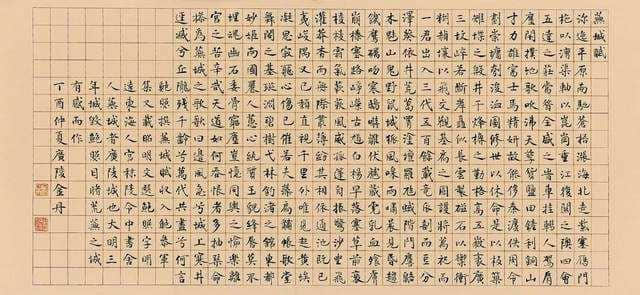 蕪城賦
沵迆平原南馳蒼梧漲海北走紫塞鴈門
柂以漕渠軸以崑崗重江複關之隩四會
五達之莊當昔全盛之時車挂轊人駕肩
廛閈撲地歌吹沸天孳貨鹽田鏟利銅山
才力雄富士馬精妍故能侈秦法佚周令
劃崇墉刳濬洫圖修世以休命是以板築
雉堞之殷井幹烽櫓之勤格高五嶽袤廣
三墳崪若斷岸矗似長雲製磁石以禦衝
糊赬壤以飛文觀基扃之固護將萬祀而
一君出入三代五百餘載竟瓜剖而豆分
澤葵依井荒葛罥塗壇羅虺蜮階鬥麏鼯
木魅山鬼野鼠城狐風嗥雨嘯昏見晨趨
飢鷹礪吻寒鴟嚇雛伏虣藏虎乳血飡膚
崩榛塞路崢嶸古馗白楊早落塞草前衰
稜稜霜氣蔌蔌風威孤蓬自振驚沙坐飛
灌莽杳而無際叢薄紛其相依通池既已
夷峻隅又已頹直視千里外唯見起黃埃
凝思寂聽心傷已摧若夫藻扃黼帳歌堂
舞閣之基琁淵碧樹弋林釣渚之館東都
妙姬南國麗人蕙心紈質玉貌絳脣莫不
埋魂幽石委骨窮塵豈憶同輿之愉樂離
宮之苦辛哉天道如何吞恨者多抽琴命
操為蕪城之歌歌曰邊風急兮城上寒井
逕滅兮丘隴殘千齡兮萬代共盡兮何言
鮑照撰蕪城賦收入鮑參軍
集又載昭明文選鮑照字明
遠東海人官秣陵令中書舍
人蕪城者廣陵城也大明三
年城毀鮑照目睹荒蕪之城
有感而作
丁酉仲夏廣陵金丹